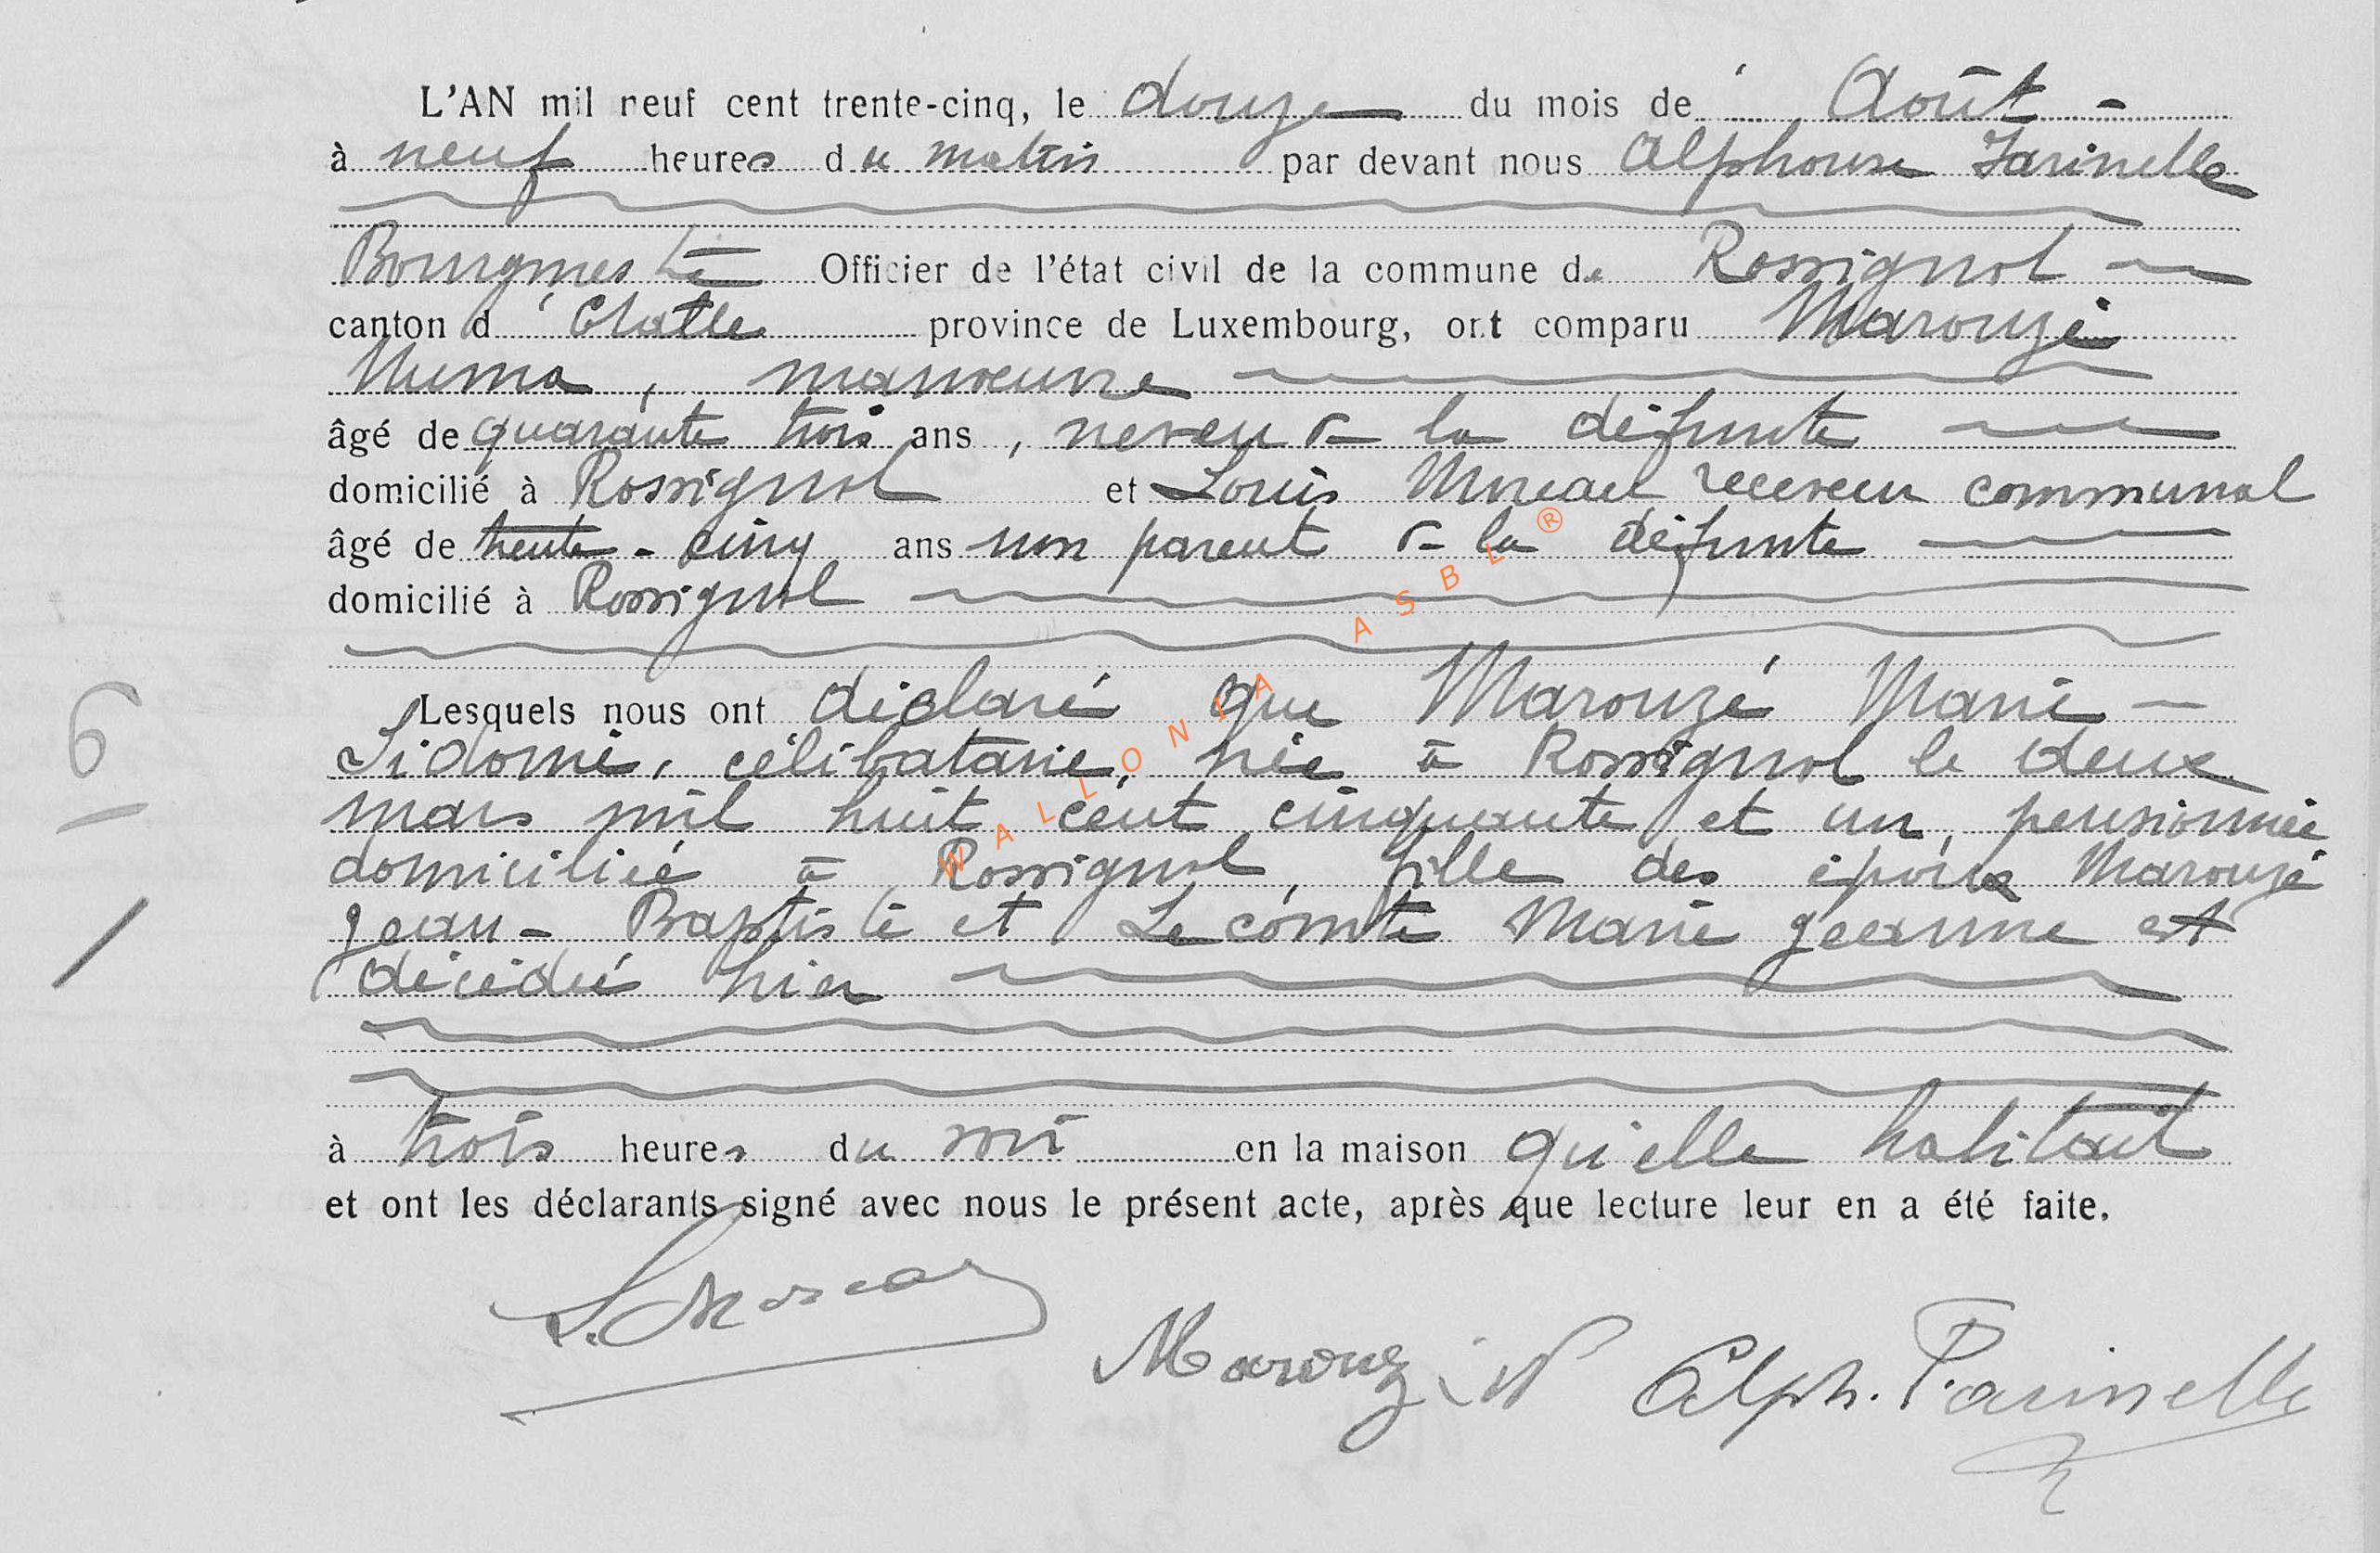 L'AN mil neuf cent trente-cinq, le douze du mois de Août -
à neuf heures du matin par devant nous Alphonse Farinelle
Bourgmestre Officier de l'état civil de la commune de Rossignol
canton d'Etalle province de Luxembourg, ont comparu Marouzé
Numa, manœuvre
âgé de quarante trois ans, neveu de la défunte
domicilié à Rossignol et Louis Moreau receveur communal
âgé de trente-cinq ans non parent de la défunte
domicilié à Rossignol
WALLONIA ASBL ®
Lesquels nous ont déclaré que Marouzé Marie
6
Sidonie, célibataire, née à Rossignol le deux
mars mil huit cent cinquante et un, pensionnée
domiciliée à Rossignol, fille des époux Marouzé
Jean-Baptiste et Lecomte Marie Jeanne est
décédée hier
à trois heures du soir en la maison qu'elle habitait
et ont les déclarants signé avec nous le présent acte, après que lecture leur en a été faite.
L. Moreau
Marouzé N Alph. Farinelle